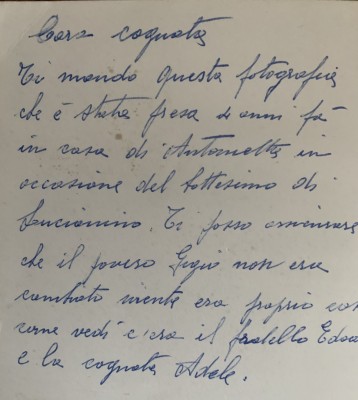 Cara cognata
Ti mando questa fotografia
che è stata presa 4 anni fà
in casa di Antonietta in
occasione del battesimo di
Lucianino. Ti posso
che il povero Gigio non era
cambiato niente era proprio cosi
come vedi c'era il fratello Edoa
e la cognata Adele.